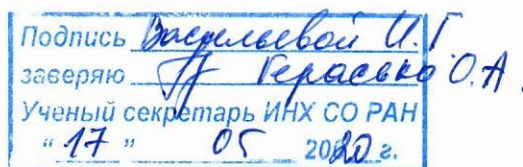 Подпись Васильевой И.Г.
заверяю Герасько О.А.
Ученый секретарь ИНХ СО РАН
"17" 05 2020 г.